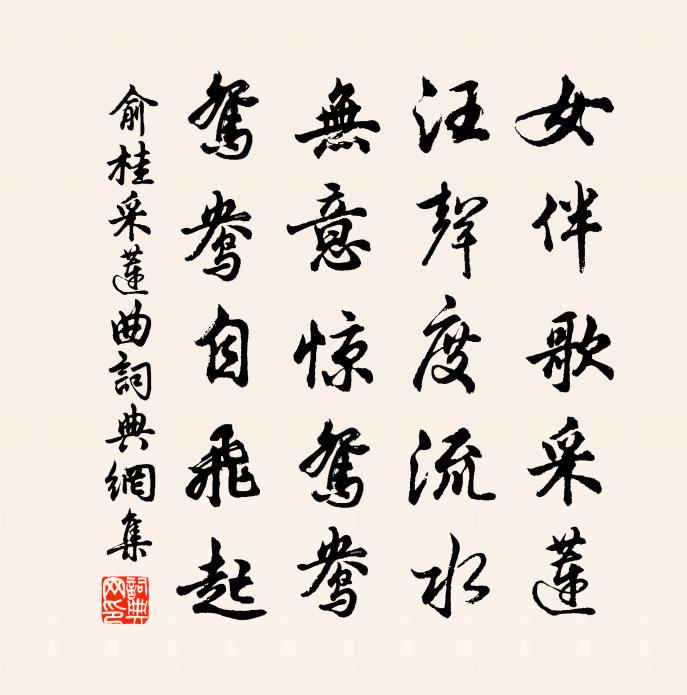 女伴歌采蓮
汪聲度流水
無意惊鴛鴦
鴛鴦自飛起
俞桂采蓮曲詞典網集
詞典网印